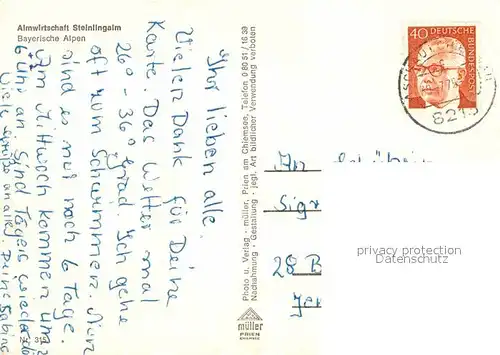 Almwirtschaft Steinlingalm
Bayerische Alpen
Ihr lieben alle.
Vielen Dank für Deine
Karte. Das Wetter mal
26°-36° grad. Ich gehe
oft zum Schwimmen. Nun
sind es nur noch 6 Tage.
Am Mittwoch kommen um
6 Uhr an. Sind Tägeis wieder da
Viele Grüße an alle. Deine Sabine
Nr. 315
Photo u. Verlag - müller, Prien am Chiemsee, Telefon 0 80 51 / 16 39
Nachahmung - Gestaltung - jegl. Art bildlicher Verwendung verboten
müller
PRIEN
CHIEMSEE
40 DEUTSCHE
BUNDESPOST
821
An
Sigr
28 B
Jen
privacy protection
Datenschutz